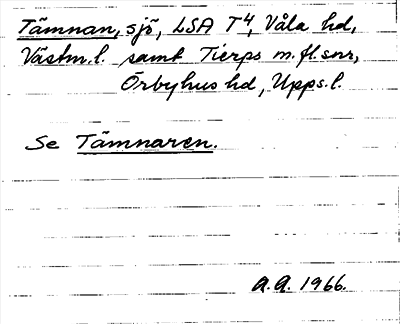 Tämnan, sjö, LSA T4, Våla hd,
Västm.l. samt Tierps m.fl. snr,
Örbyhus hd, Upps.l.
Se Tämnaren.
A.A. 1966.